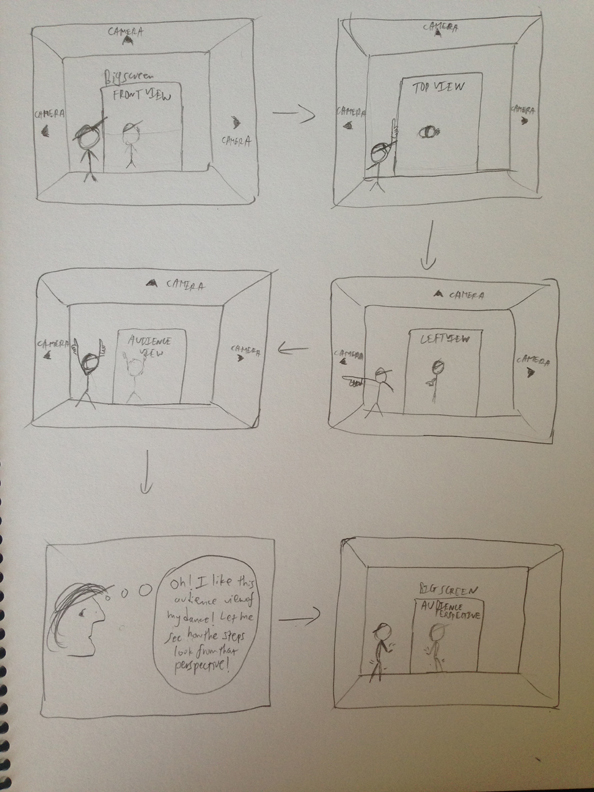 CAMERA
Bigscreen
FRONT VIEW
CAMERA
CAMERA
CAMERA
TOP VIEW
CAMERA
CAMERA
CAMERA
AUDIENCE
VIEW
CAMERA
CAMERA
CAMERA
LEFTVIEW
CAMERA
CAMERA
Oh! I like this
audience view of
my dance! Let me
see how the steps
look from that
perspective!
BIGSCREEN
AUDIENCE
PERSPECTIVE